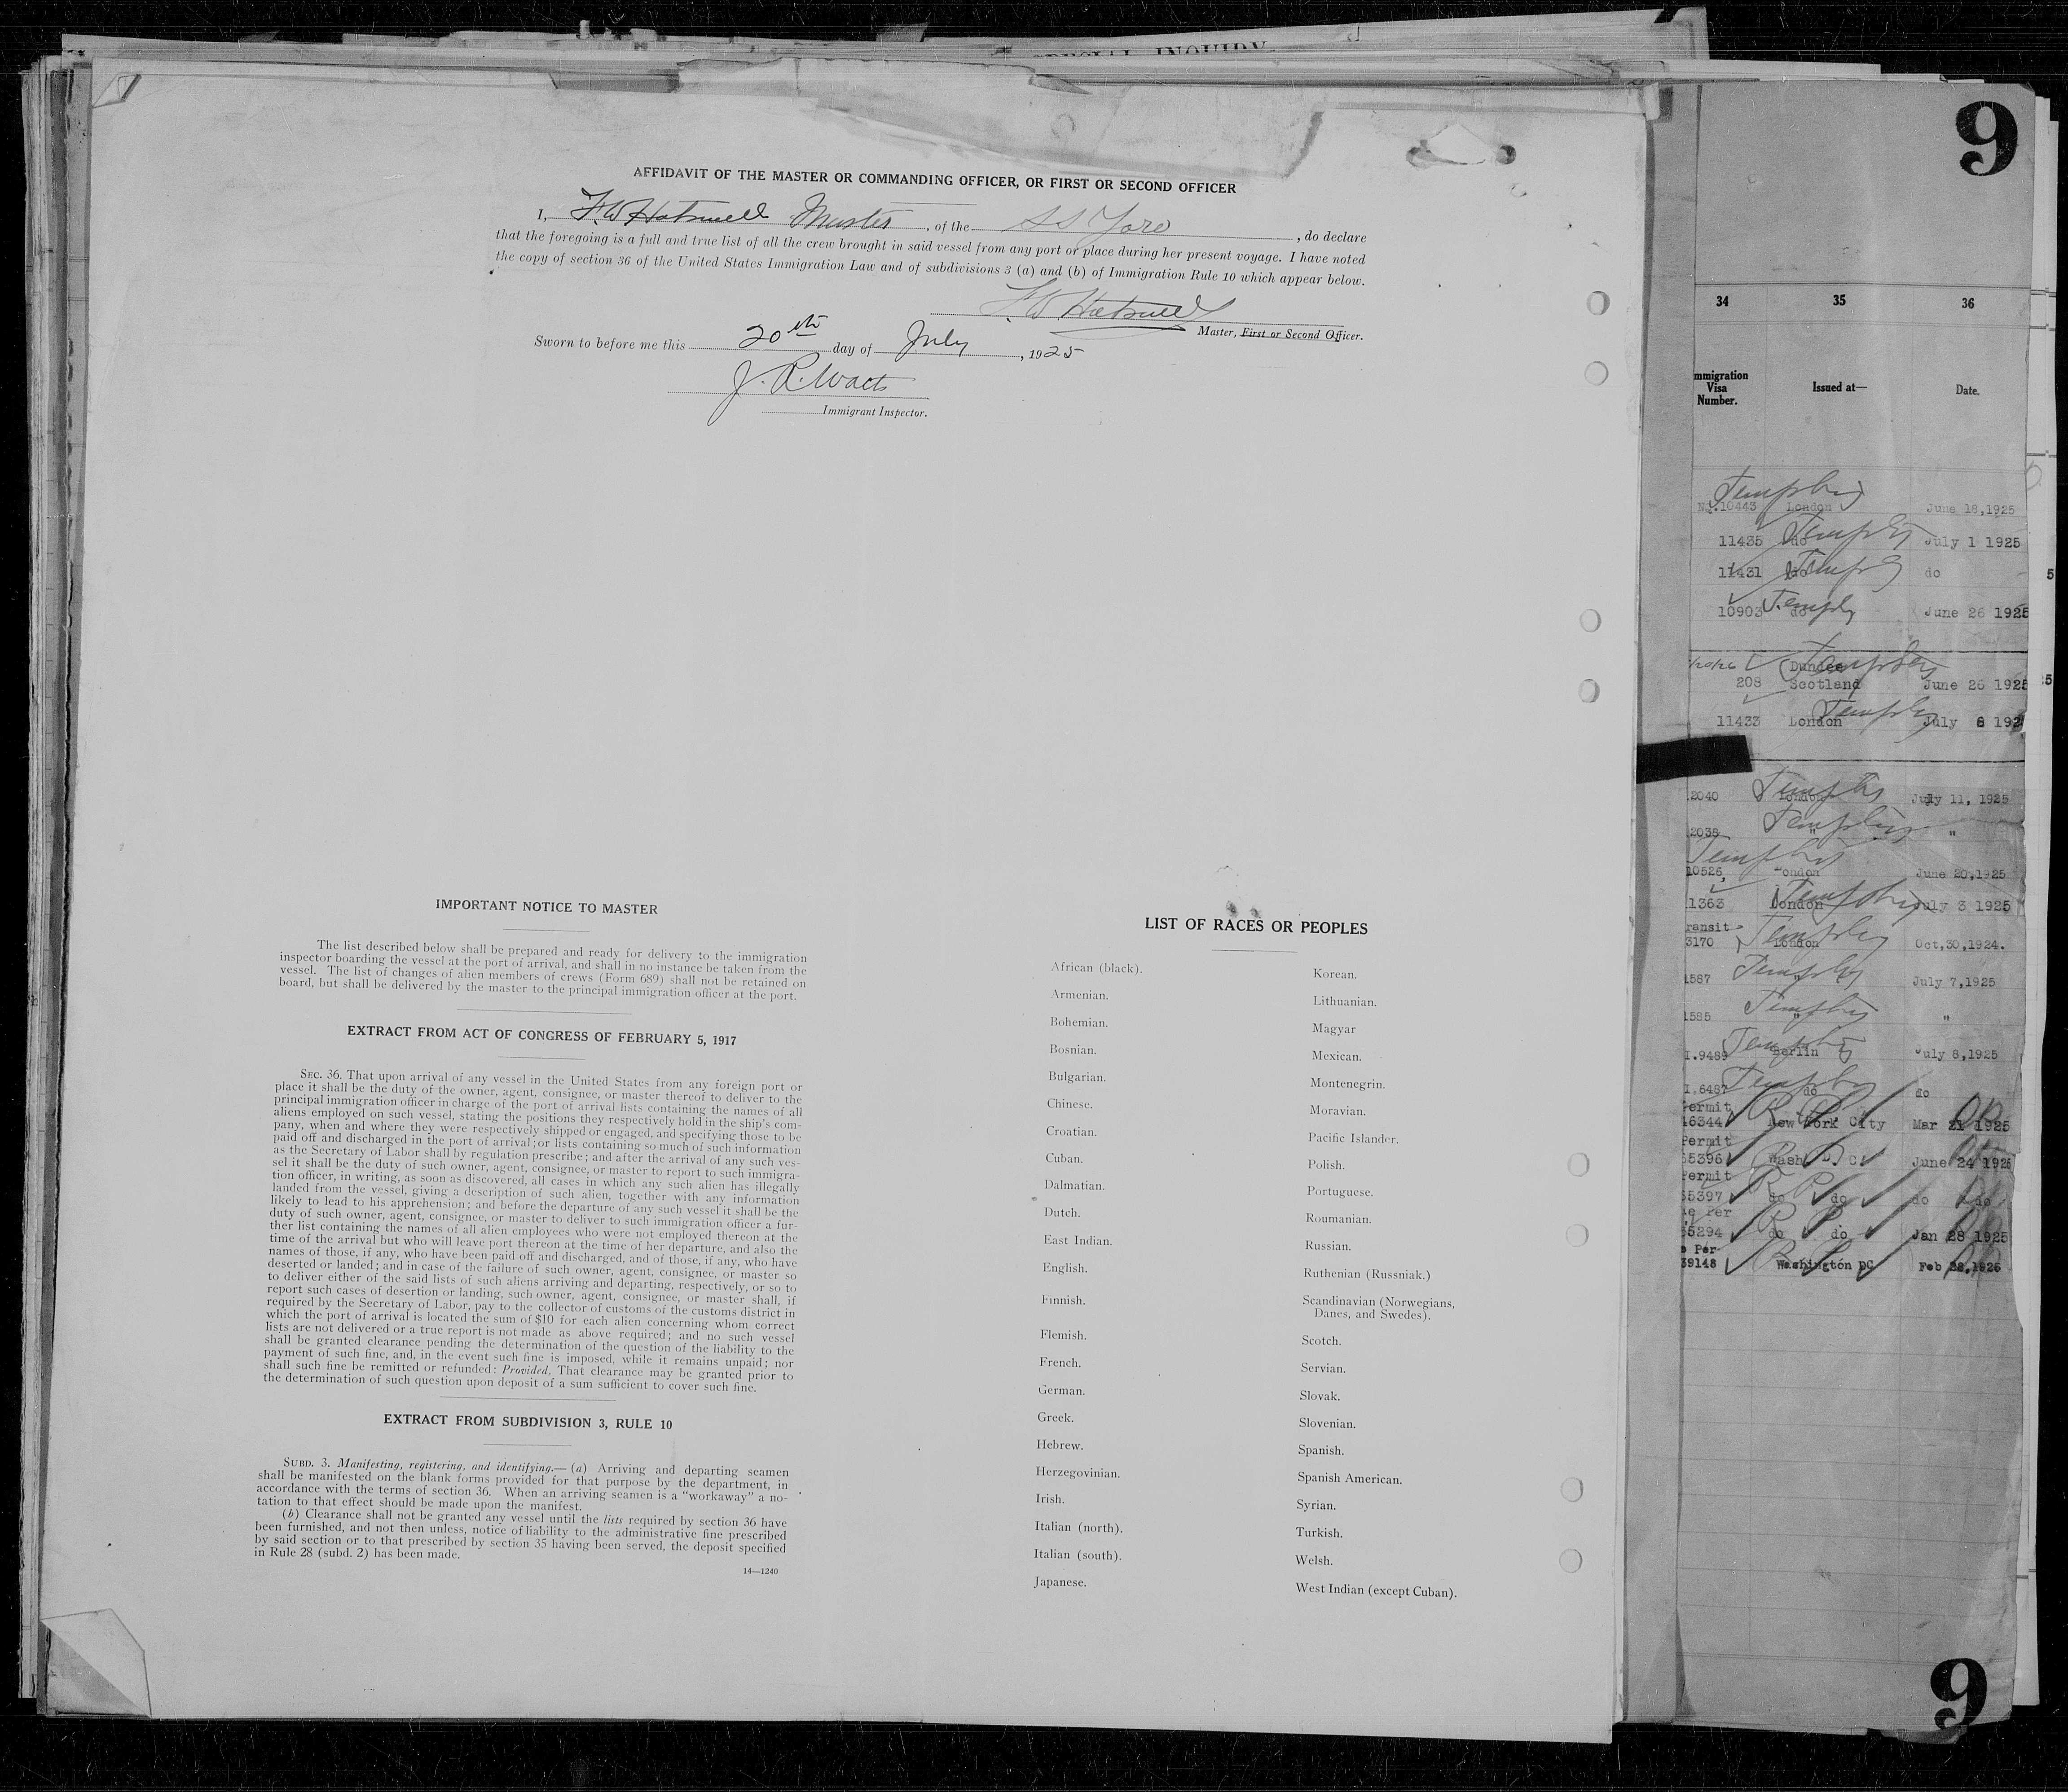 SPECIAL INQUIRY
AFFIDAVIT OF THE MASTER OR COMMANDING OFFICER, OR FIRST OR SECOND OFFICER
I, F.W. Hatswell Master, of the SS Yoro, do declare
that the foregoing is a full and true list of all the crew brought in said vessel from any port or place during her present voyage. I have noted
the copy of section 36 of the United States Immigration Law and of subdivisions 3 (a) and (b) of Immigration Rule 10 which appear below.
F.W. Hatswell
Master, First or Second Officer.
Sworn to before me this 20th day of July, 1925
J. R. Watts
Immigrant Inspector.
IMPORTANT NOTICE TO MASTER
The list described below shall be prepared and ready for delivery to the immigration
inspector boarding the vessel at the port of arrival, and shall in no instance be taken from the
vessel. The list of changes of alien members of crews (Form 689) shall not be retained on
board, but shall be delivered by the master to the principal immigration officer at the port.
EXTRACT FROM ACT OF CONGRESS OF FEBRUARY 5, 1917
SEC. 36. That upon arrival of any vessel in the United States from any foreign port or
place it shall be the duty of the owner, agent, consignee, or master thereof to deliver to the
principal immigration officer in charge of the port of arrival lists containing the names of all
aliens employed on such vessel, stating the positions they respectively hold in the ship's com-
pany, when and where they were respectively shipped or engaged, and specifying those to be
paid off and discharged in the port of arrival; or lists containing so much of such information
as the Secretary of Labor shall by regulation prescribe; and after the arrival of any such ves-
sel it shall be the duty of such owner, agent, consignee, or master to report to such immigra-
tion officer, in writing, as soon as discovered, all cases in which any such alien has illegally
landed from the vessel, giving a description of such alien, together with any information
likely to lead to his apprehension; and before the departure of any such vessel it shall be the
duty of such owner, agent, consignee, or master to deliver to such immigration officer a fur-
ther list containing the names of all alien employees who were not employed thereon at the
time of the arrival but who will leave port thereon at the time of her departure, and also the
names of those, if any, who have been paid off and discharged, and of those, if any, who have
deserted or landed; and in case of the failure of such owner, agent, consignee, or master so
to deliver either of the said lists of such aliens arriving and departing, respectively, or so to
report such cases of desertion or landing, such owner, agent, consignee, or master shall, if
required by the Secretary of Labor, pay to the collector of customs of the customs district in
which the port of arrival is located the sum of $10 for each alien concerning whom correct
lists are not delivered or a true report is not made as above required; and no such vessel
shall be granted clearance pending the determination of the question of the liability to the
payment of such fine, and, in the event such fine is imposed, while it remains unpaid; nor
shall such fine be remitted or refunded: Provided, That clearance may be granted prior to
the determination of such question upon deposit of a sum sufficient to cover such fine.
EXTRACT FROM SUBDIVISION 3, RULE 10
SUBD. 3. Manifesting, registering, and identifying.—(a) Arriving and departing seamen
shall be manifested on the blank forms provided for that purpose by the department, in
accordance with the terms of section 36. When an arriving seamen is a "workaway" a no-
tation to that effect should be made upon the manifest.
(b) Clearance shall not be granted any vessel until the lists required by section 36 have
been furnished, and not then unless, notice of liability to the administrative fine prescribed
by said section or to that prescribed by section 35 having been served, the deposit specified
in Rule 28 (subd. 2) has been made.
14—1240
LIST OF RACES OR PEOPLES
African (black).
Armenian.
Bohemian.
Bosnian.
Bulgarian.
Chinese.
Croatian.
Cuban.
Dalmatian.
Dutch.
East Indian.
English.
Finnish.
Flemish.
French.
German.
Greek.
Hebrew.
Herzegovinian.
Irish.
Italian (north).
Italian (south).
Japanese.
Korean.
Lithuanian.
Magyar
Mexican.
Montenegrin.
Moravian.
Pacific Islander.
Polish.
Portuguese.
Roumanian.
Russian.
Ruthenian (Russniak.)
Scandinavian (Norwegians,
Danes, and Swedes).
Scotch.
Servian.
Slovak.
Slovenian.
Spanish.
Spanish American.
Syrian.
Turkish.
Welsh.
West Indian (except Cuban).
9
34 35 36
mmigration
Visa
Number.
Issued at—
Date.
No.10443 London June 18,1925
11435 do July 1 1925
11431 do do
10903 do June 26 1925
Dundee
208 Scotland June 26 1925
11433 London July 8 192
2040 London July 11, 1925
2038 " "
10526, London June 20,1925
1363 London July 3 1925
ransit
3170 London Oct,30,1924.
1587 " July 7,1925
1585 " "
1.9489 Berlin July 8,1925
1.6487 do do
ermit
16344 New York City Mar 21 1925
Permit
55396 Wash D. C. June 24 1925
Permit
55397 do do do do
e Per
55294 do do Jan 28 1925
e Per-
39148 Washington DC Feb 28,1925
9